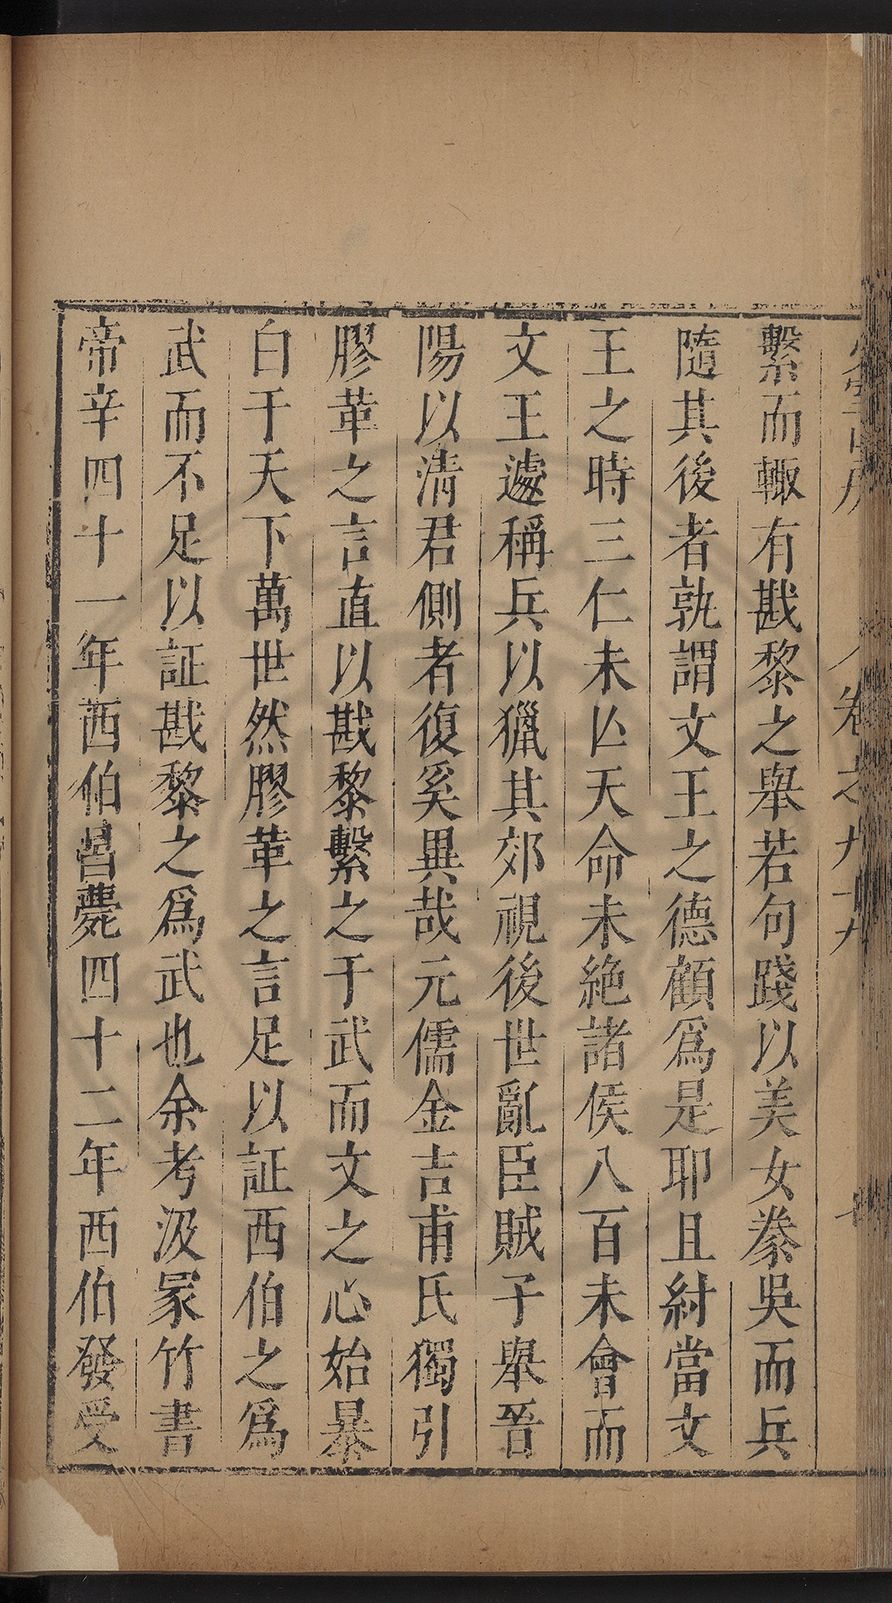 繫而輙有戡黎之舉若句踐以美女豢吳而兵
隨其後者孰謂文王之德顧爲是耶且紂當文
王之時三仁未亾天命未絶諸侯八百未會而
文王遽稱兵以獵其郊視後世亂臣賊子舉晉
陽以清君側者復奚異哉元儒金吉甫氏獨引
膠革之言直以戡黎繫之于武而文之心始暴
白于天下萬世然膠革之言足以証西伯之爲
武而不足以証戡黎之爲武也余考汲冡竹書
帝辛四十一年西伯昌薨四十二年西伯發受